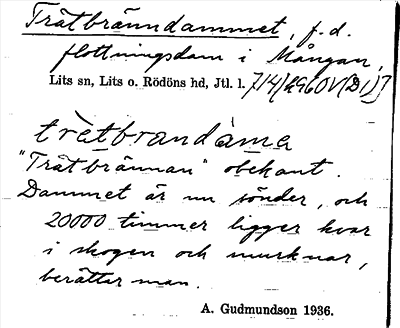 Trätbränndammet, f.d.
flottningsdam i Mångan,
Lits sn, Lits o. Rödöns hd, Jtl. l.
trètbrandàma
"Trätbrännan" obekant.
Dammet är nu sönder, och
20000 timmer ligger kvar
i skogen och murknar,
berättar man.
A. Gudmundson 1936.